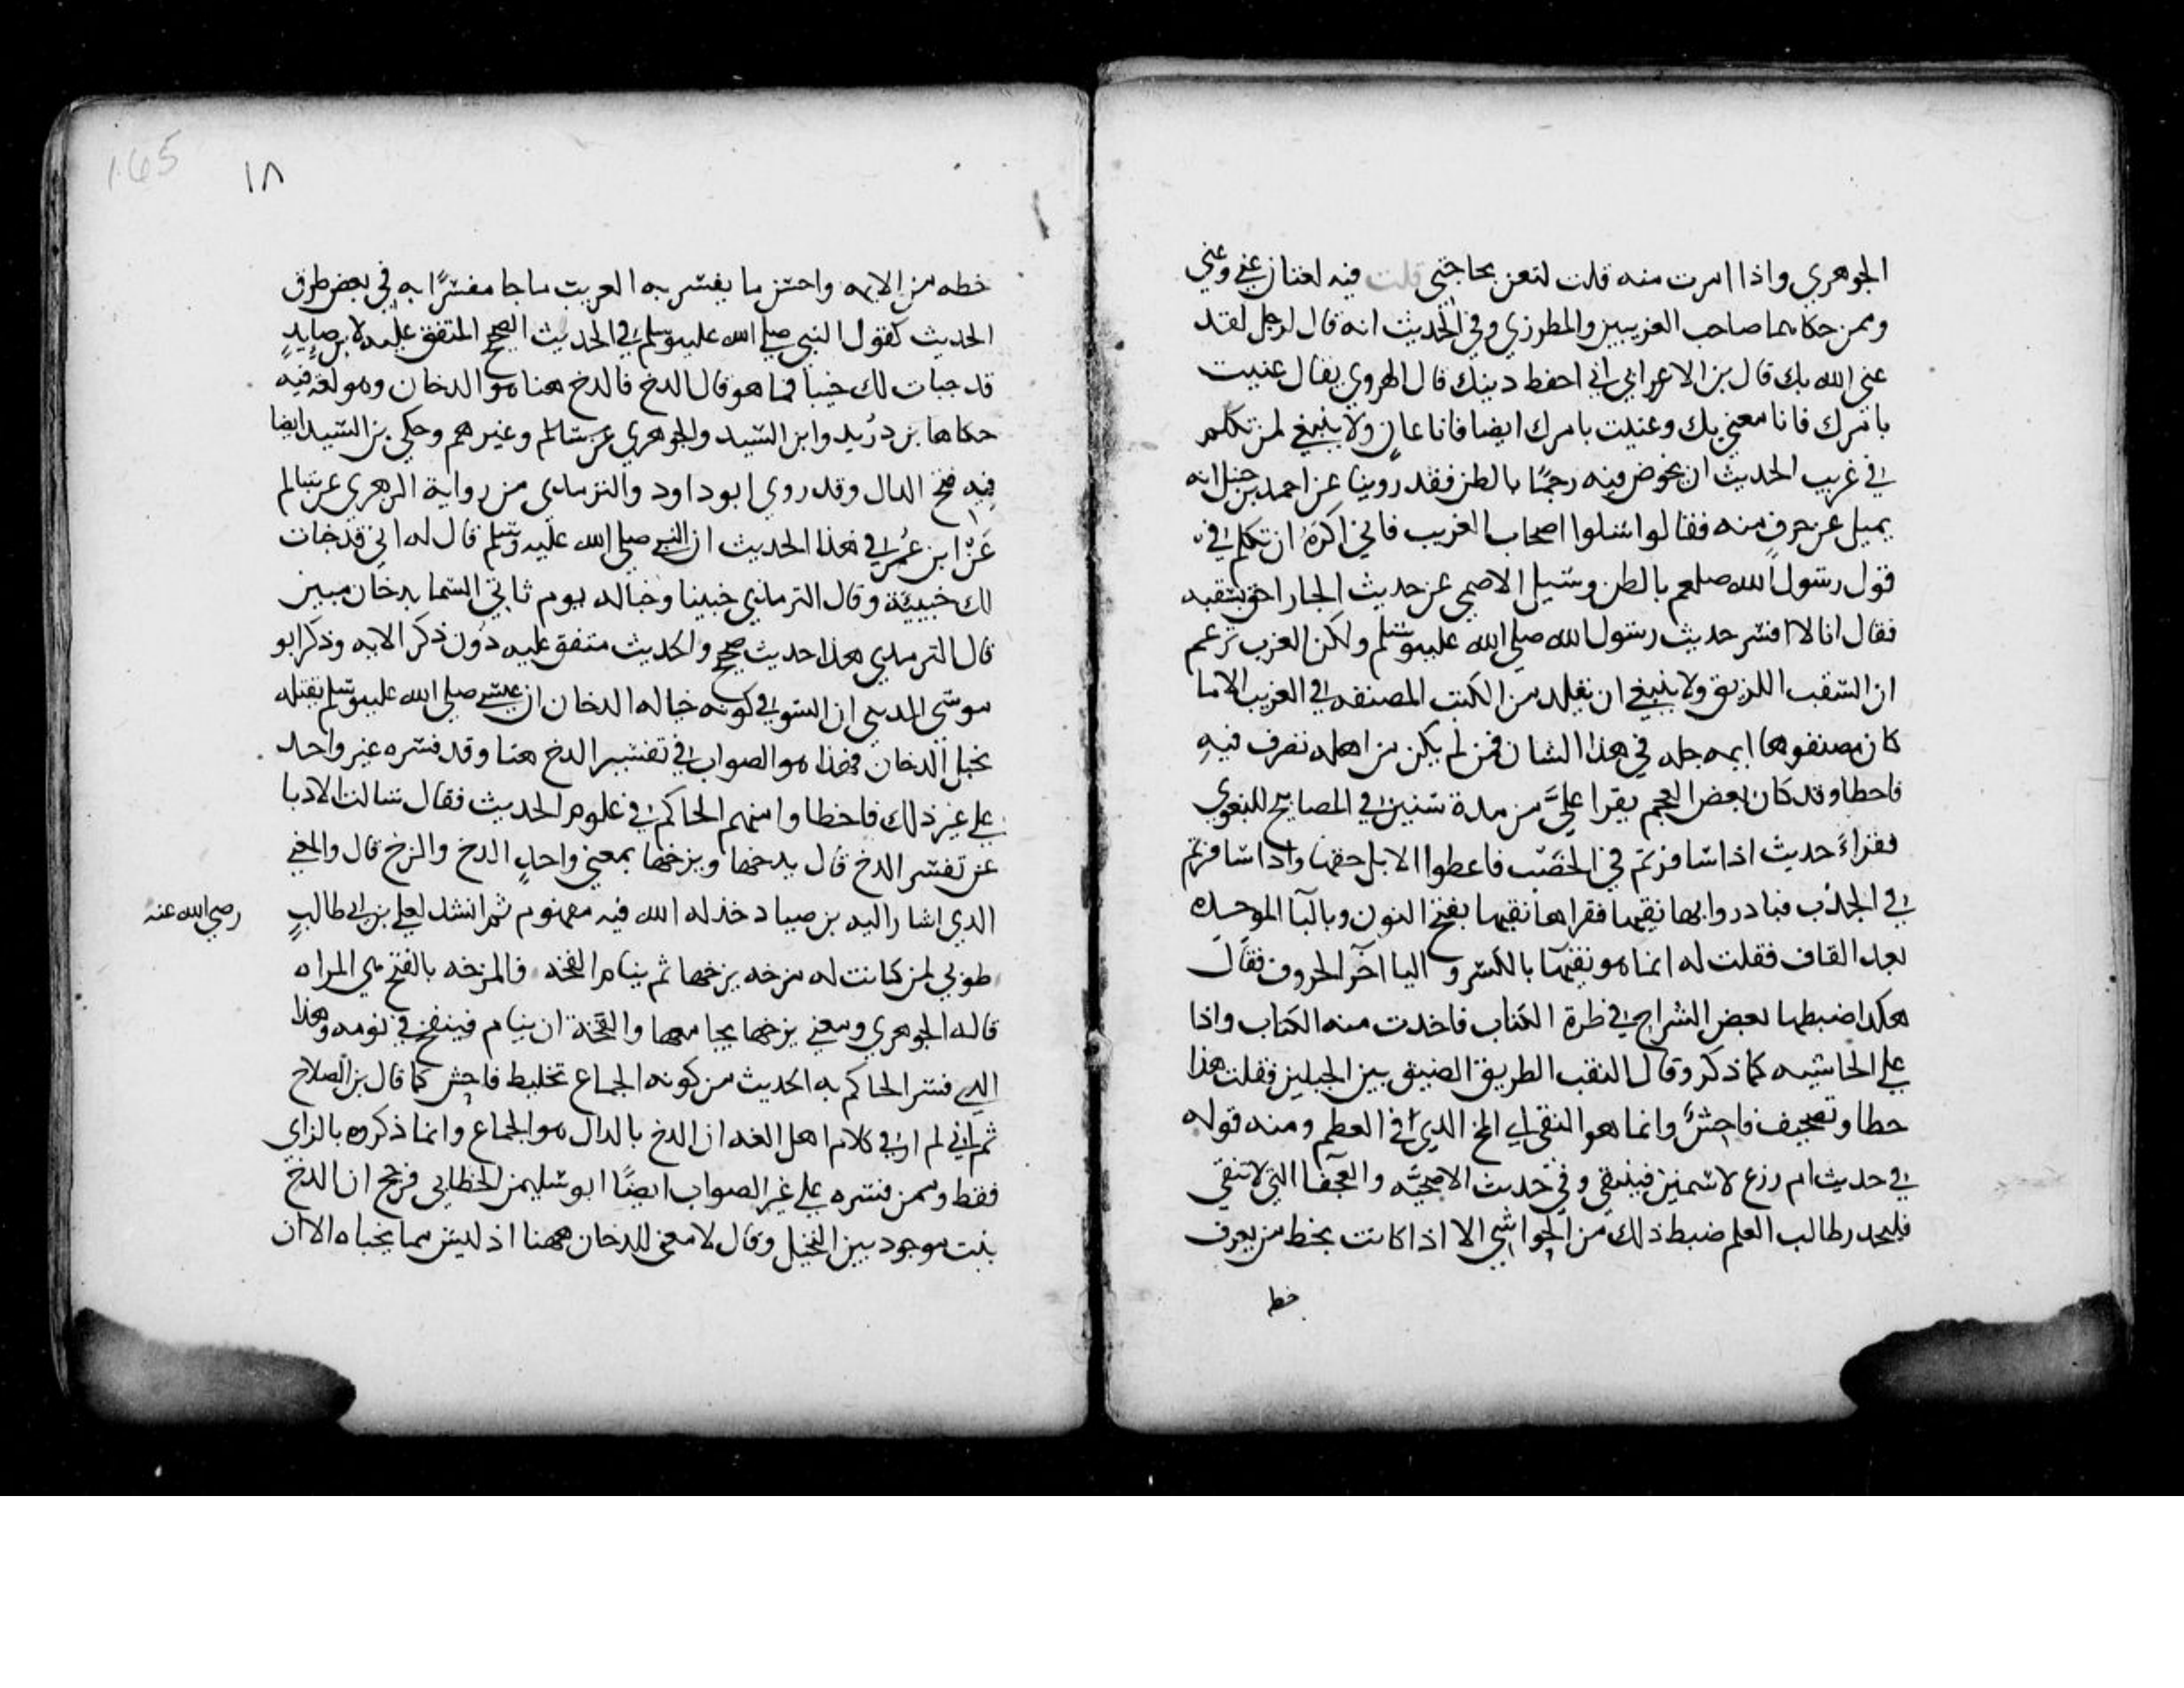 الجوهري واذا امرت منه قلت لتعن بحاجتي قلت فيه لغتان عني وعني
وممن حكاهما صاحب الغريبين والمطرزي وفي الحديث انه قال لرجل لقد
عنى الله بك قال بن الاعرابي اي احفظ دينك قال الهروي يقال عنيت
بامرك فانا معني بك وعنيت بامرك ايضا فانا عانٍ ولا ينبغي لمن تكلم
في غريب الحديث ان يخوض فيه رجمًا بالظن فقد روينا عن احمد بن حنبل انه
سيل عن حرفٍ منه فقال لواسلوا اصحاب الغريب فاني اكره ان تكلم في
قول رسول الله صلعم بالظن وسيل الاصمعي عن حديث الجار احق بسقبه
فقال انا لا افسر حديث رسول الله صلى الله عليه وسلم ولكن العرب تزعم
ان السقب اللزيق ولا ينبغي ان يقلد من الكتب المصنفه في الغريب الا ما
كان مصنفوها ايمه جله في هذا الشان فمن لم يكن من اهله تصرف فيه
فاخطا وقد كان بعض العجم يقرا عليَّ من مدة سنين في المصابيح للبغوي
فقراء حديث اذا سافرتم في الخصب فاعطوا الابل حقها واذا سافرتم
في الجدب فبادروا بها نقيها فقراها نقبها بفتح النون وبالبا الموحده
بعد القاف فقلت له انما هو نقيها بالكسر واليا آخر الحروف فقال
هكدا ضبطها بعض الشراح في طرة الكتاب فاخدت منه الكتاب واذا
على الحاشيه كما ذكر وقال النقب الطريق الضيق بين الجبلين فقلت هذا
خطا وتصحيف فاحش وانما هو النقي اي المخ الدي في العظم ومنه قوله
في حديث ام زرع لا سمين فينتقى وفي حديث الاضحيّه والعجفا التي لا تنقي
فليحدر طالب العلم ضبط ذلك من الحواشي الا اذا كانت بخط من يعرف
خط
165
١٨
خطه من الايمه واحسن ما يفسر به الغريب ما جا مفسرًا به في بعض طرق
الحديث كقول النبي صلى الله عليه وسلم في الحديث الصحيح المتفق عليه لابن صايدٍ
قد خبات لك خبيا فما هو قال الدخ فالدخ هنا هو الدخان وهو لغة فيه
حكاها بن دُريد وابن السيد والجوهري عن سالم وغيرهم وحكي بن السيد ايضا
فيه فتح الدال وقد روى ابو داود والترمدي من رواية الزهري عن سالم
عَنْ ابن عُمر في هذا الحديث ان النبي صلى الله عليه وسلم قال له اني قد خبات
لك خبيئة وقال الترمذي خبيئا وخبا له يوم تاتي السما بدخان مبين
قال الترمدي هذا حديث صحيح والحديث متفق عليه دون ذكر الايه وذكر ابو
موسى المديني ان السر في كونه خبا له الدخان ان عيسى صلى الله عليه وسلم يقتله
بجبل الدخان فهذا هو الصواب في تفسير الدخ هنا وقد فسره غير واحد
على غير ذلك فاخطا وا منهم الحاكم في علوم الحديث فقال سالت الادبا
عن تفسر الدخ قال يدخها ويزخها بمعنى واحدٍ الدخ والزخ قال والمعنى
الدي اشار اليه بن صياد خذله الله فيه مفهوم ثم انشد لعلي بن ابي طالبٍ رضي الله عنه
طوبى لمن كانت له مزخه يزخها ثم ينام الفخه فالمزخه بالفتح هي المراه
قاله الجوهري ومعنى يزخها يجامعها والفخة ان ينام فينفخ في نومه وهذا
الدي فسر الحاكم به الحديث من كونه الجماع تخليط فاحش كما قال بن الصلاح
ثم اني لم ار في كلام اهل اللغه ان الدخ بالدال هو الجماع وانما ذكروه بالزاي
فقط وممن فسره على غير الصواب ايضًا ابو سليمن الخطابي فرجح ان الدخ
نبت موجود بين النخيل وقال لا معنى للدخان ههنا اذ ليس مما يخباه الا ان